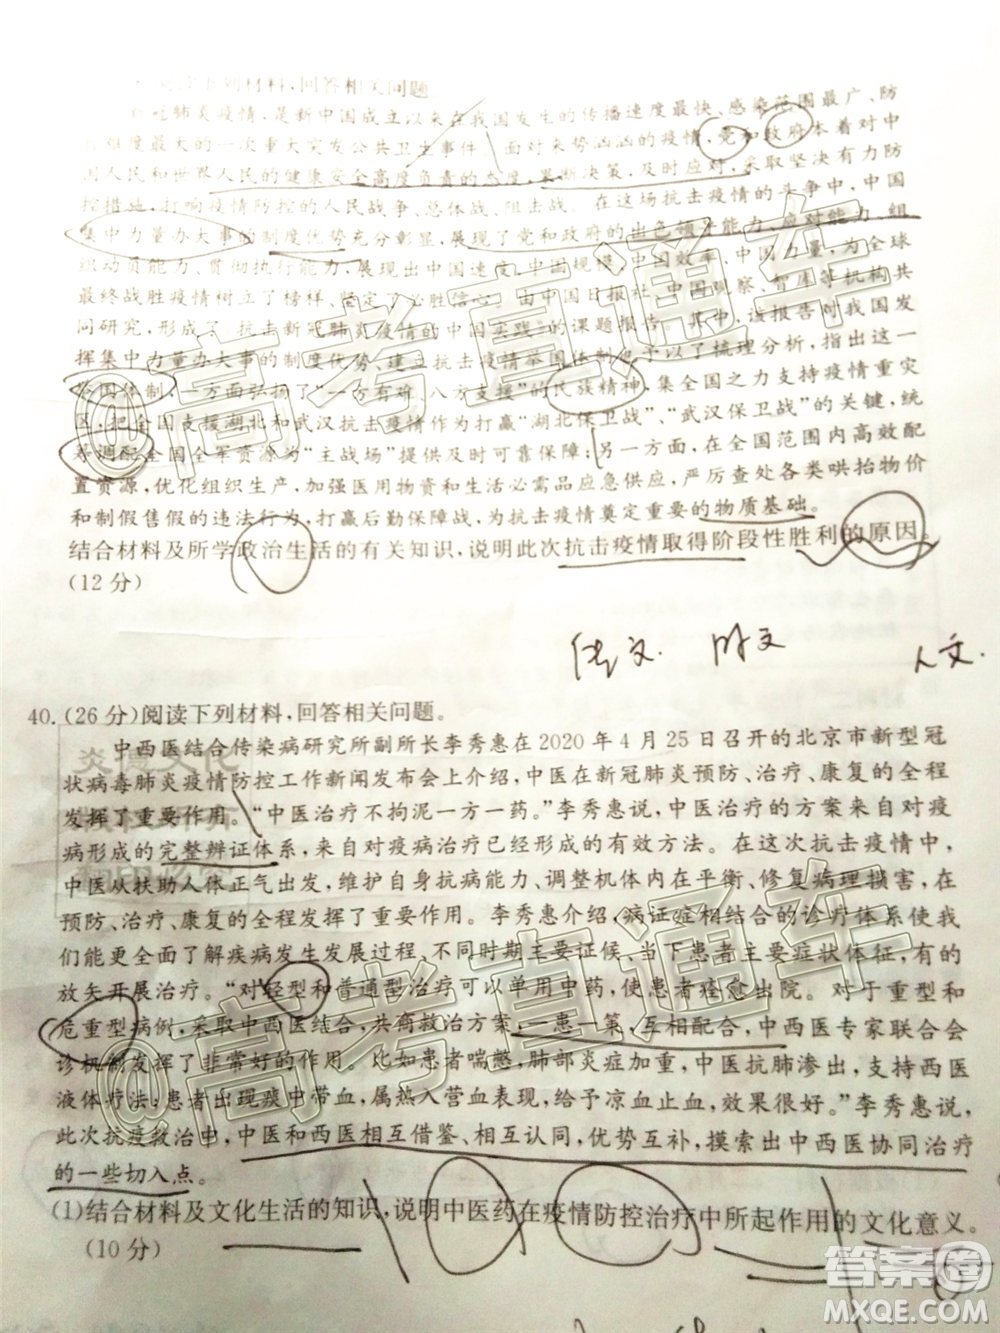 下列材料,回答相关问题
肺炎疫情,是新中国成立以来在我国发生的传播速度最快、感染范围最广、防
难度最大的一次重大突发公共卫生事件。面对来势汹汹的疫情,党和政府本着对中
国人民和世界人民的健康安全高度负责的态度,果断决策、及时应对,采取坚决的防
控措施,打响疫情防控的人民战争、总体战、阻击战。在这场抗击疫情的斗争中,中国
集中力量办大事的制度优势充分彰显,展现了党和政府的出色领导能力、应对能力、组
织动员能力、贯彻执行能力,展现出中国速度、中国规模、中国效率,中国力量,为全球
最终战胜疫情树立了榜样、坚定了必胜信心。由中国日报社、中国观察、智库等机构共
同研究,形成了《抗击新冠肺炎疫情的中国实践》的课题报告。其中,该报告对我国发
挥集中力量办大事的制度优势、建立抗击疫情举国体制予以了梳理分析:抗击疫情
举国体制,一方面弘扬了“一方有难、八方支援”的民族精神,集全国之力支持疫情重灾
区,把全国支援湖北和武汉抗击疫情作为打赢“湖北保卫战”、“武汉保卫战”的关键,统
筹调配全国全军资源为“主战场”提供保障;另一方面,在全国范围内高效配
置资源,优化组织生产,加强医用物资和生活必需品应急供应,严厉查处各类哄抬物价
和制假售假的违法行为,打赢后勤保障战,为抗击疫情奠定重要的物质基础。
结合材料及所学政治生活的有关知识,说明此次抗击疫情取得阶段性胜利的原因。
(12分)
传文. 时文 人文.
40.(26分)阅读下列材料,回答相关问题。
中西医结合传染病研究所副所长李秀惠在2020年4月25日召开的北京市新型冠
状病毒肺炎疫情防控工作新闻发布会上介绍,中医在新冠肺炎预防、治疗、康复的全程
发挥了重要作用。“中医治疗不拘泥一方一药。”李秀惠说,中医治疗的方案来自对疫
病形成的完整辨证体系,来自对疫病治疗已经形成的有效方法。在此次抗击疫情中,
中医从扶助人体正气出发,维护自身抗病能力、调整机体内在平衡、修复病理损害,在
预防、治疗、康复的全程发挥了重要作用。李秀惠介绍,病证症相结合的诊疗体系使我
们能更全面了解疾病发生发展过程、不同时期主要证候,当下患者主要症状体征,有的
放矢开展治疗。“对轻型和普通型治疗可以单用中药,使患者痊愈出院。对于重型和
危重型病例,采取中西医结合,共商救治方案,一患一策、互相配合,中西医专家联合会
诊机制发挥了非常好的作用。比如患者喘憋,肺部炎症加重,中医抗肺渗出,支持西医
液体疗法;患者出现痰中带血,属热入营血表现,给予凉血止血,效果很好。”李秀惠说,
此次抗疫救治中,中医和西医相互借鉴、相互认同,优势互补,摸索出中西医协同治疗
的一些切入点。
(1)结合材料及文化生活的知识,说明中医药在疫情防控治疗中所起作用的文化意义。
(10分)
@高考直通车
@高考直通车
答案圈
MXQE.COM